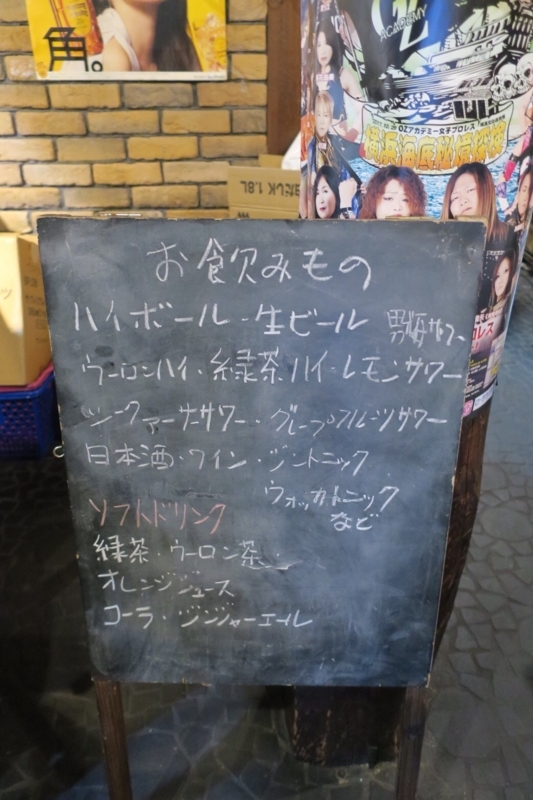 角。
OZ
ACADEMY
OZアカデミー女子プロレス
1.8L
お飲みもの
ハイボール・生ビール 男梅サワー
ウーロンハイ・緑茶ハイ・レモンサワー
シークァーサーサワー・グレープフルーツサワー
日本酒・ワイン・ジントニック
ウォッカトニック
など
ソフトドリンク
緑茶・ウーロン茶
オレンジジュース
コーラ・ジンジャーエール